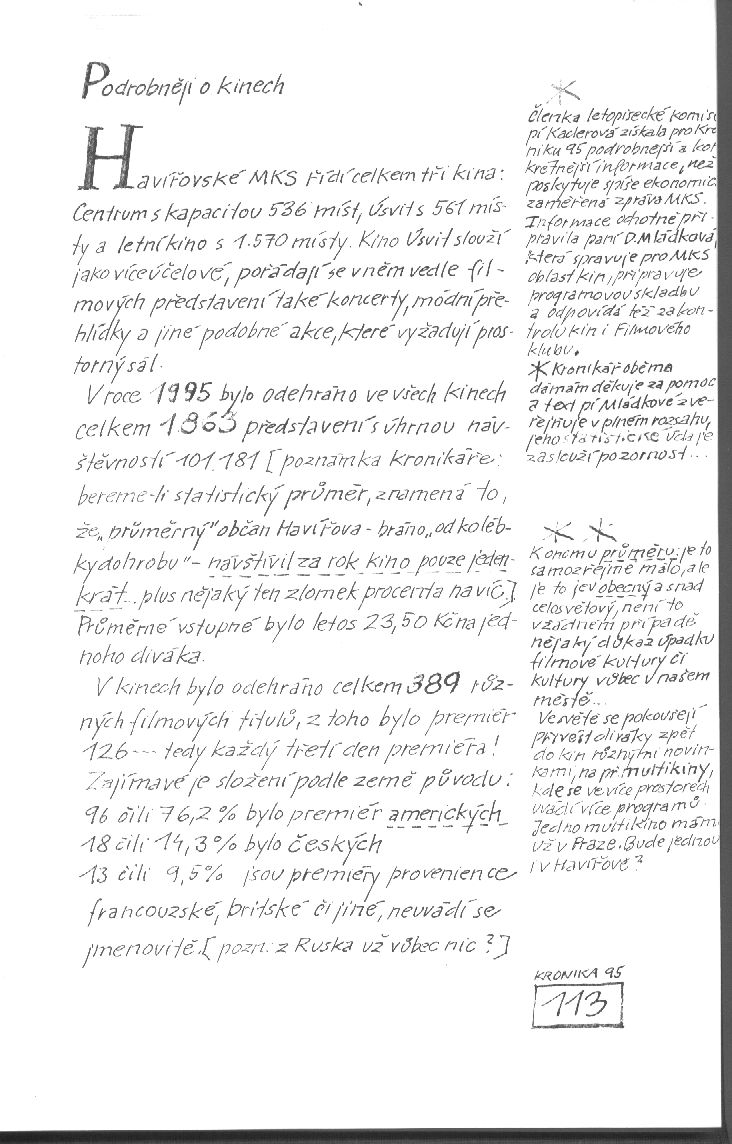 Podrobněji o kinech
Havířovské MKS řídí celkem tři kina:
Centrum s kapacitou 536 míst, Úsvit s 561 mís-
ty a letní kino s 1.570 místy. Kino Úsvit slouží
jako víceúčelové, pořádají se v něm vedle fil-
mových představení také koncerty, módní pře-
hlídky a jiné podobné akce, které vyžadují pros-
torný sál.
V roce 1995 bylo odehráno ve všech kinech
celkem 1863 představení s úhrnou náv-
štěvností 101.181 [poznámka kronikáře:
bereme-li statistický průměr, znamená to,
že „průměrný" občan Havířova - bráno „od koléb-
ky do hrobu" - navštívil za rok kino pouze jeden-
krát... plus nějaký ten zlomek procenta navíc,]
Průměrné vstupné bylo letos 23,50 Kč na jed-
noho diváka.
V kinech bylo odehráno celkem 389 růz-
ných filmových titulů, z toho bylo premiér
126 --- tedy každý třetí den premiéra!
Zajímavé je složení podle země původu:
96 čili 76,2 % bylo premiér amerických
18 čili 14,3 % bylo českých
13 čili 9,5 % jsou premiéry provenience
francouzské, britské či jiné, neuvádí se
jmenovitě. [pozn.: z Ruska už vůbec nic?]
*
Členka letopisecké komise
pí Kaclerová získala pro Kro
niku 95 podrobnější a kon
krétnější informace, než
poskytuje spíše ekonomic
zaměřená zpráva MKS.
Informace ochotně při-
pravila paní D. Mládková,
která spravuje pro MKS
oblast kin, připravuje
programovou skladbu
a odpovídá též za kon-
trolu kin i Filmového
klubu.
* Kronikář oběma
dámám děkuje za pomoc
a text pí Mládkové zve-
řejňuje v plném rozsahu,
jeho statistické údaje
zaslouží pozornost...
* *
K onomu průměru: je to
samozřejmě málo, ale
je to jev obecný a snad
celosvětový, není to
v žádném případě
nějaký důkaz úpadku
filmové kultury či
kultury vůbec v našem
městě...
Ve světě se pokoušejí
přivést diváky zpět
do kin různými novin-
kami, na př. multikiny,
kde se ve více prostorech
uvádí více programů.
Jedno multikino mám
už v Praze. Bude jednou
i v Havířově?
KRONIKA 95
113